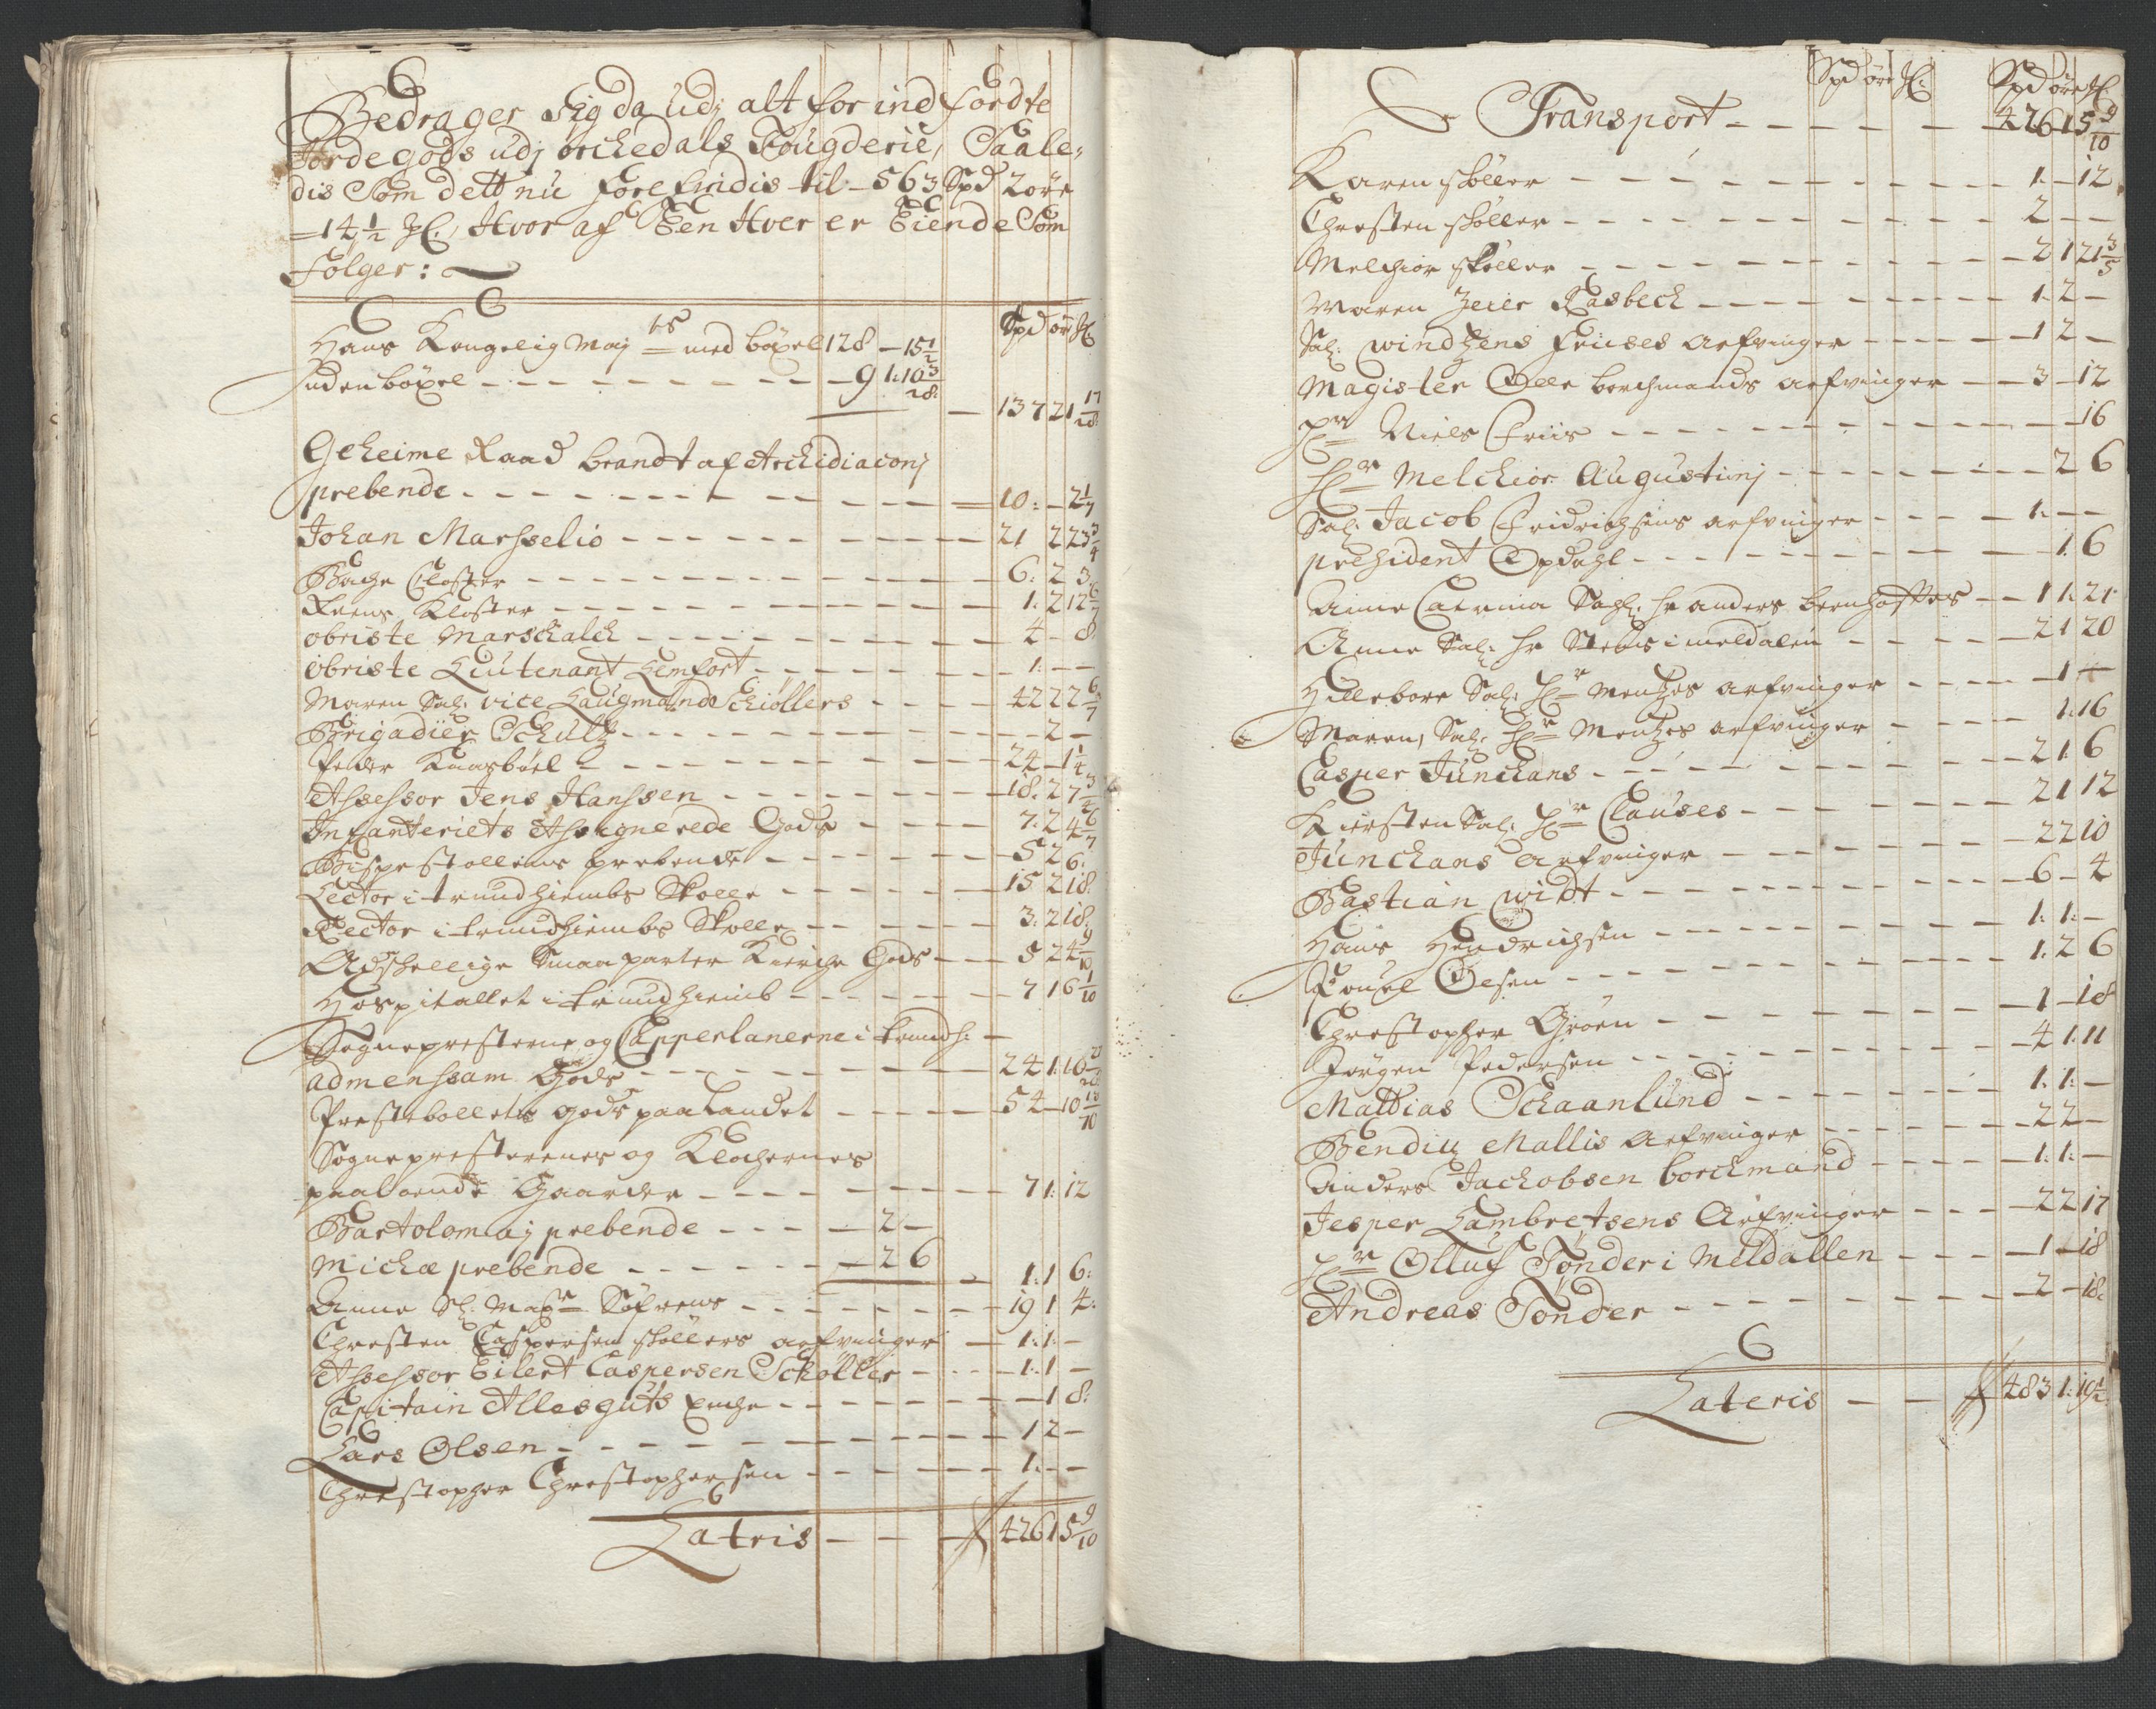 Bedrager Sig da udj alt for ind førdte
Jordegods udj Orchedals Fougderie, Saale,
dis Som dett nu forefindis til - 563 Spd 2 øre
- 14 1/2 ʒl. Hvor af Een Hver er Eiende Som
Følger:
Spd ør ʒl
Hans Kongelig Maj ts med böxel 128 - 15 1/2
uden böxel - 9 1: 10 3/28
137 2 1 17/28
Geheime Raad brandt af Archidiaconj
prebende - 10: - 2 1/7
Johan Marsselio - 21 2 23 3/4
Bache Closter - 6: 2 3:
Reens Kloster - 1: 2 12 6/7
obriste Marschalck - 4 - 8
obriste Leutenant Lemfort - 1: - -
Maren Sal: vice Laugmands Schiøllers - 42 2 2 6/7
Brigadier Schultz - 2 -
Peder Kaasbøel - 24 - 1 1/4
Assessor Jens Hanssen - 18: 2 7 3/4
Infanteriets Assignerede Gods - 7: 2 4 6/7
Bispestollens prebende - 5 2 6:
Lector i trundhiembs Skolle - 15 2 18:
Rector i trundhiembs Skolle - 3: 2 18:
Adskellige Smaa parter Kierche Gods - 5 2 4 9/10
Hospitallet i trundhiemb - 7 1 6 1/10
Sognepresterne og Capperlanerne i trundh: -
admenssam Gods - 24 1: 16
Prestebollets gods paa Landet - 54 - 10
Sognepresternes og Klockernes
paaboende Gaarder - 7 1: 12
Bartolomaj prebende - 2 -
Michæ prebende - 2 6
1: 1 6:
Anne Sl: Mag r Søfrens - 19 1 4:
Chresten Caspersen skøllers arfvinger - 1: 1: -
Assessor Eilert Caspersen Schøller - 1: 1 -
Capitain Allesguts Enche - 1 8:
Lars Olsen - 1 2 -
Chrestopher Chrestophersen - 1: - -
Latris - 426 1 5 9/10
Spd øre ʒl: Spd øre ʒl
Transport - 426 1 5 9/10
Karen skøller - 1: - 12
Chresten skøller - 2 - -
Melchior skøller - 2 1 21 3/5
Maren Jeier Rasbech - 1: 2 -
Sal: Windtzens Friises arfvinger - 1 2 -
Magister Olle borchmands arfvinger - 3 - 12
H r Niels Friis - 16
H r Melchior Augustinj - 2 6
Sal: Jacob Fridrichsens arfvinger - 1: - -
prehident Opdahl - 1: 6
Anne Catrina Sahl: hr anders beenhoftes - 1 1: 21
Anne Sal: hr Stens i meldalen - 2 1 20
Hilleborr Sal: H r Mentzes arfvinger - 1 -
Maren, Sal: H r Mentzes arfvinger - 1: 16
Casper Junchans - 2 1 6
Kiersten Sal: H r Clauses - 2 1 12
Junchans arfvinger - 2 2 10
Bastian Widt - 6 - 4
Hans Hendrichsen - 1: 1: -
Pouel Olsen - 1: 2 6
Chrestopher Groen - 1 - 18
Jørgen Pedersen - 4 1: 11
Mattias Schaanlund - 1: 1: -
Bendix Mallis Arfvinger - 2 2 -
Anders Jachobsen borchmand - 1: 1: -
Jesper Lambretsens Arfvinger - 2 2 17
H r Olluf Tønder i Meldallen - 1 - 18
Andreas Tønder - 2 - 18:
Lateris - 483 1: 19 1/2